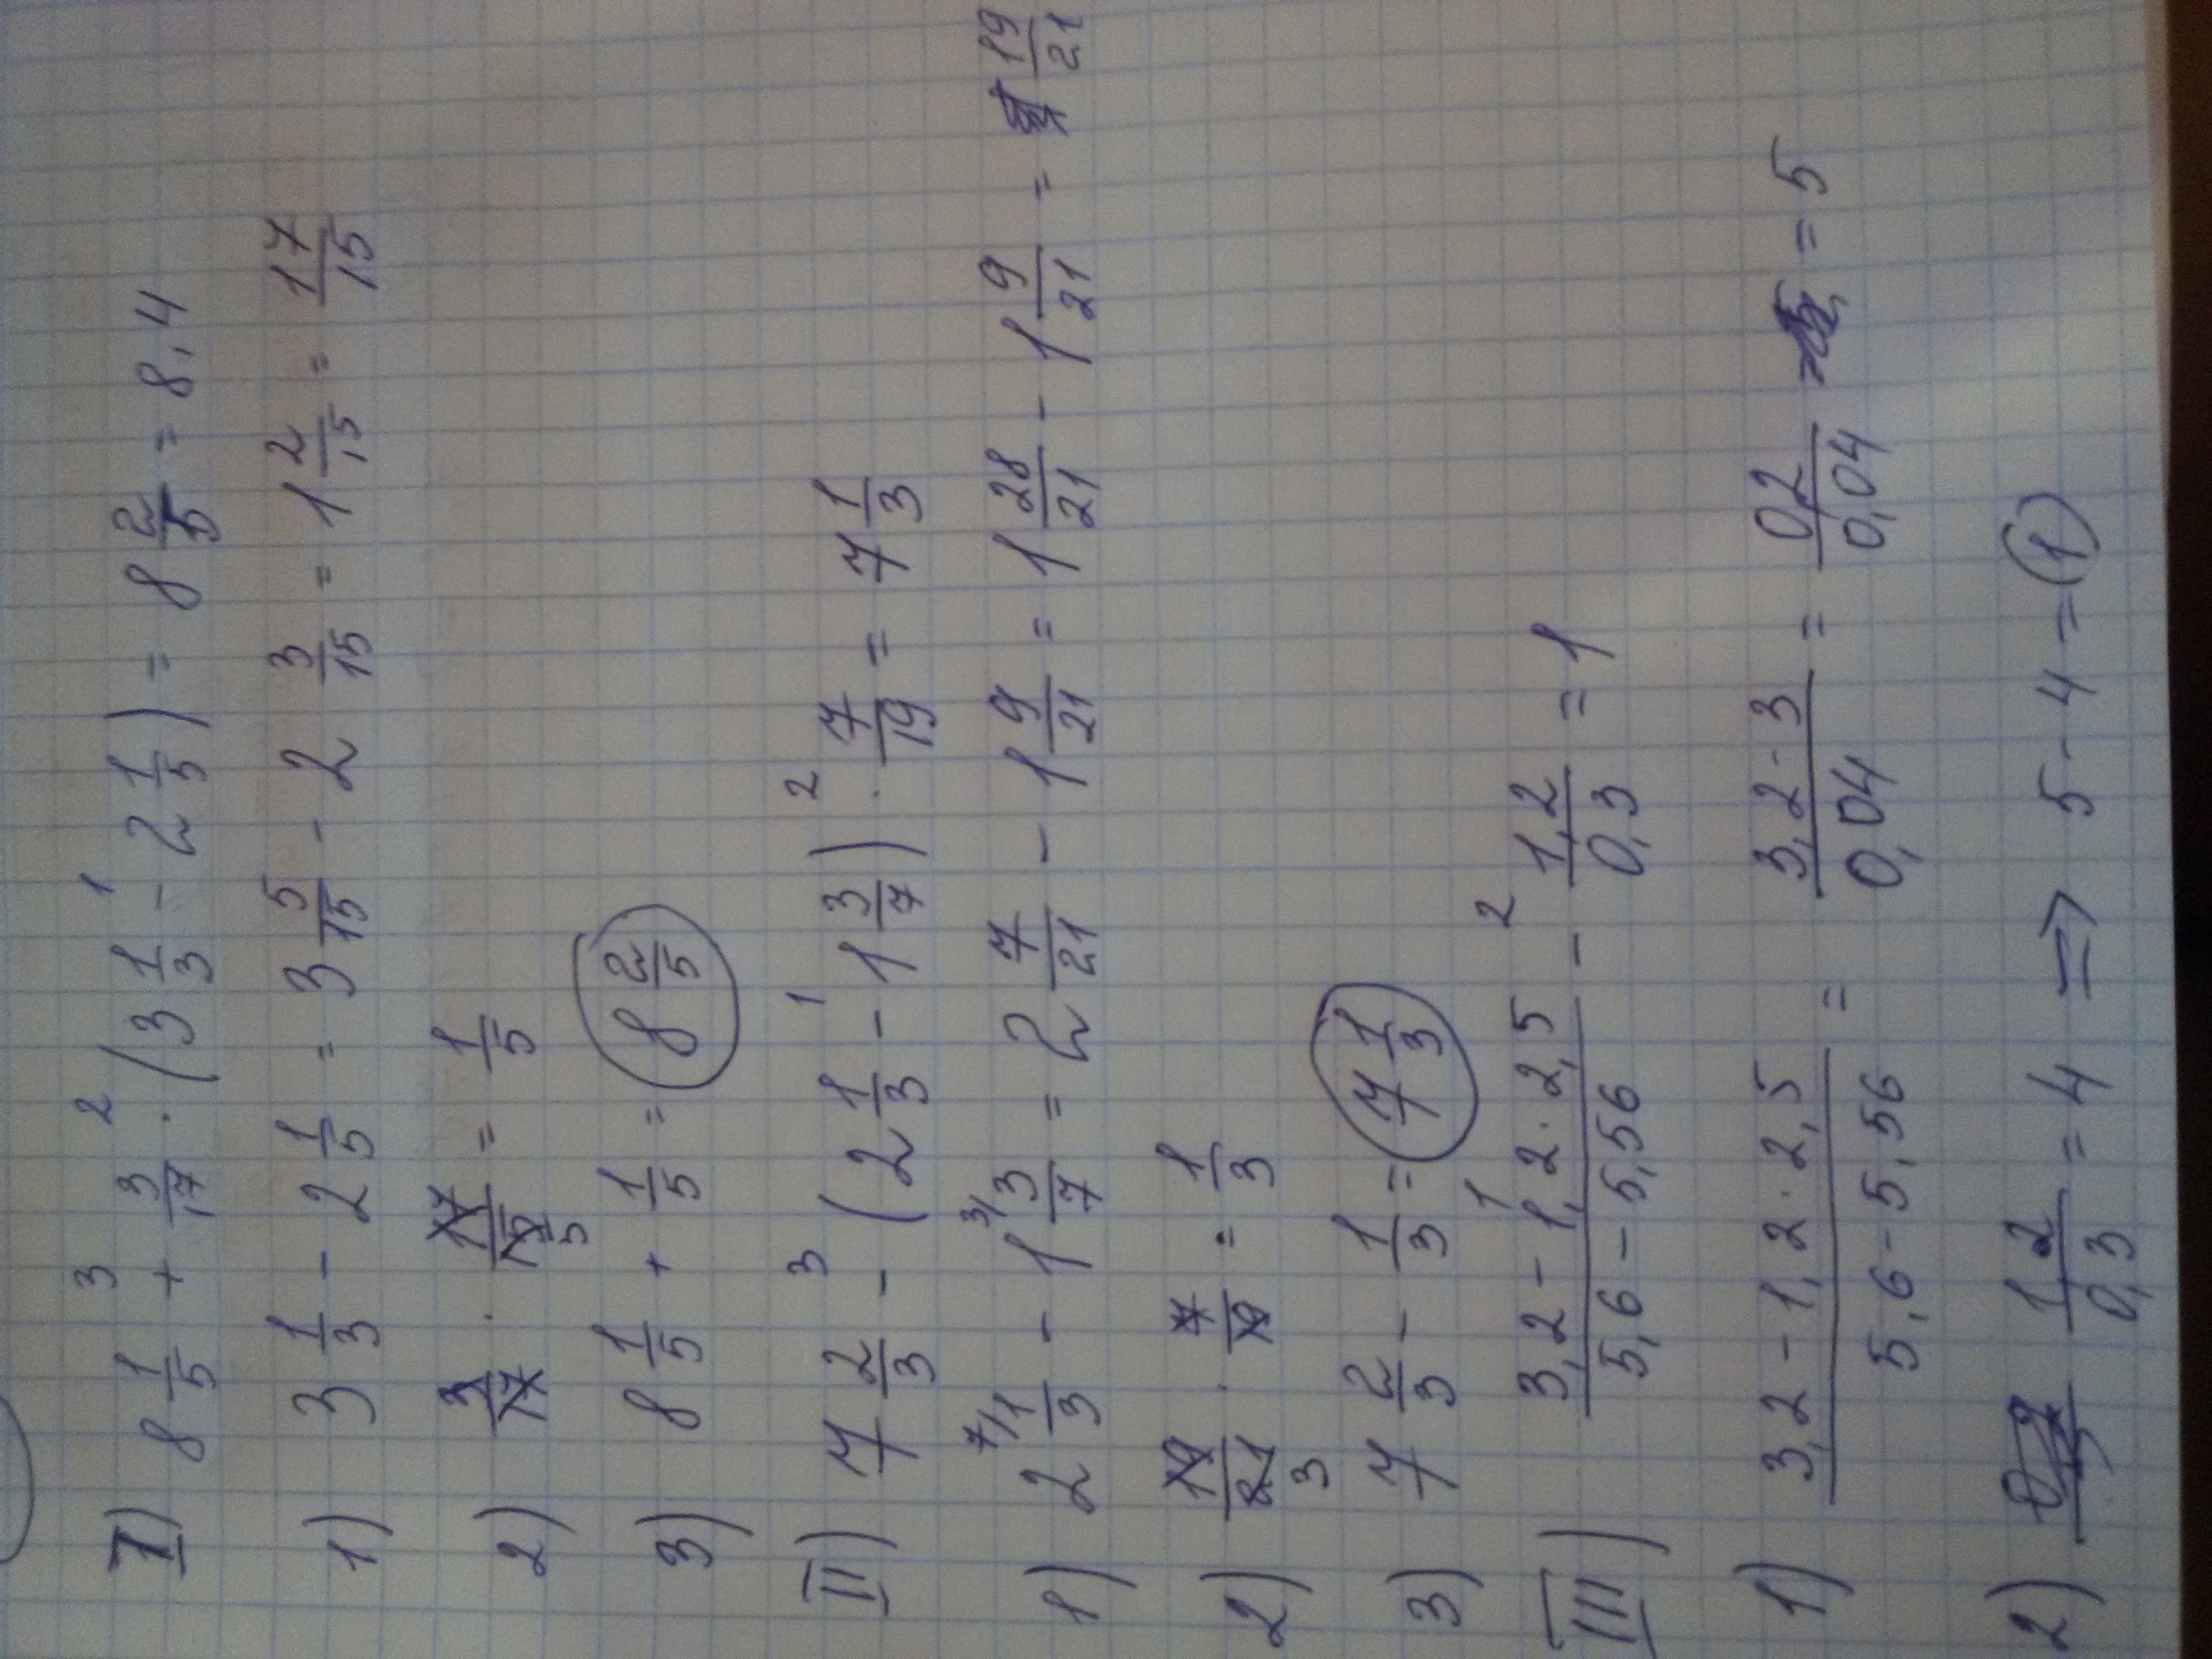 I) 8 1/5 + 3/17 · (3 1/3 - 2 1/5) = 8 2/5 = 8,4
3 2 1
1) 3 1/3 - 2 1/5 = 3 5/15 - 2 3/15 = 1 2/15 = 17/15
2) 3/17 · 17/15 = 1/5
5
3) 8 1/5 + 1/5 = 8 2/5
II) 7 2/3 - (2 1/3 - 1 3/7) · 7/19 = 7 1/3
3 1 2
1) 2 1/3 - 1 3/7 = 2 7/21 - 1 9/21 = 1 28/21 - 1 9/21 = 19/21
7/ 3/
2) 19/21 · 7/19 = 1/3
3
3) 7 2/3 - 1/3 = 7 1/3
III) (3,2 - 1,2 · 2,5)/(5,6 - 5,56) - 1,2/0,3 = 1
1 2
1) (3,2 - 1,2 · 2,5)/(5,6 - 5,56) = (3,2 - 3)/0,04 = 0,2/0,04 = 5
2) 1,2/0,3 = 4 => 5 - 4 = 1